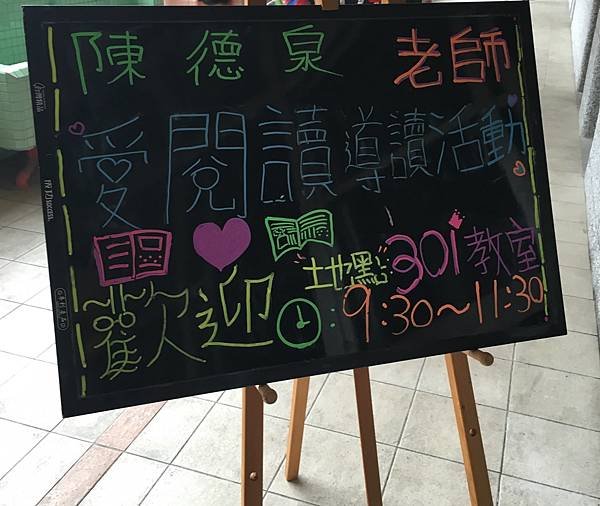 陳德泉 老師
愛閱讀導讀活動
地點:301教室
歡迎 :9:30~11:30